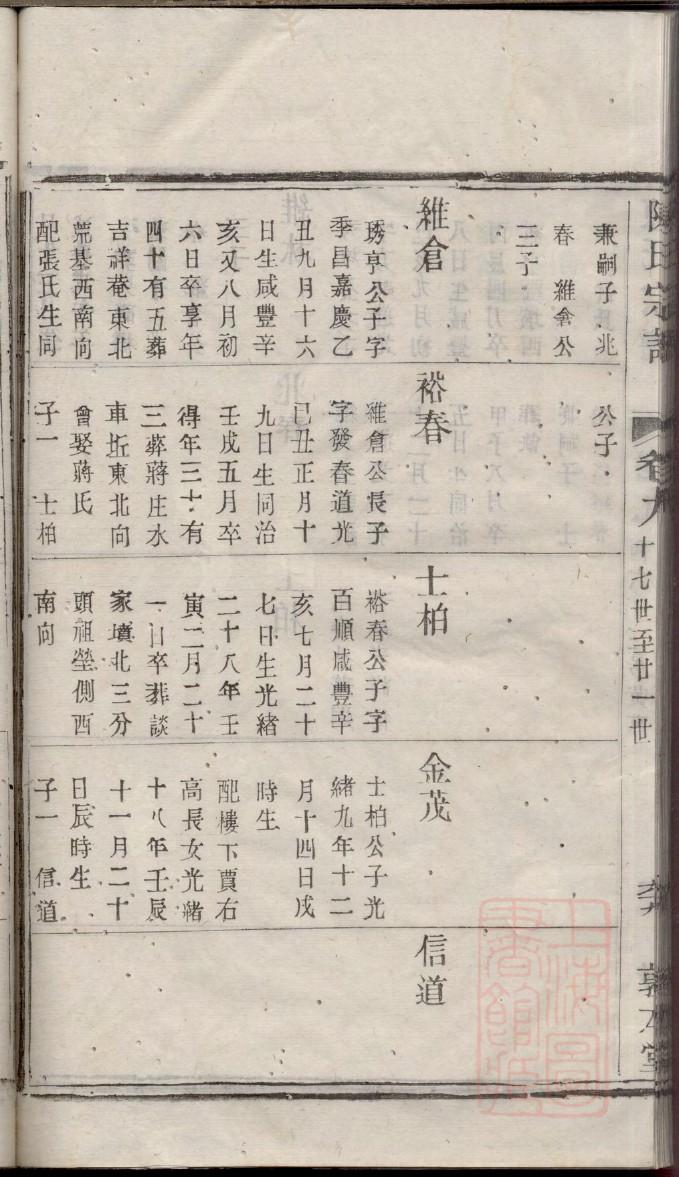 陳氏宗譜
卷九
十七世至廿一世
敦本堂
兼嗣子 兆
春 維倉公
三子
公子
維倉
琇亨公子字
季昌嘉慶乙
丑九月十六
日生咸豐辛
亥又八月初
六日卒享年
四十有五葬
吉祥菴東北
荒基西南向
配張氏生同
裕春
維倉公長子
字發春道光
己丑正月十
九日生同治
壬戌五月卒
得年三十有
三葬蔣庄水
車坵東北向
會娶蔣氏
子一 士柏
士柏
裕春公子字
百順咸豐辛
亥七月二十
七日生光緒
二十八年壬
寅二月二十
一日卒葬談
家墳北三分
頭祖塋側西
南向
金茂
士柏公子光
緒九年十二
月十四日戌
時生
配樓下賈右
高長女光緒
十八年壬辰
十一月二十
日辰時生
子一 信道
信道
上海圖
書館藏